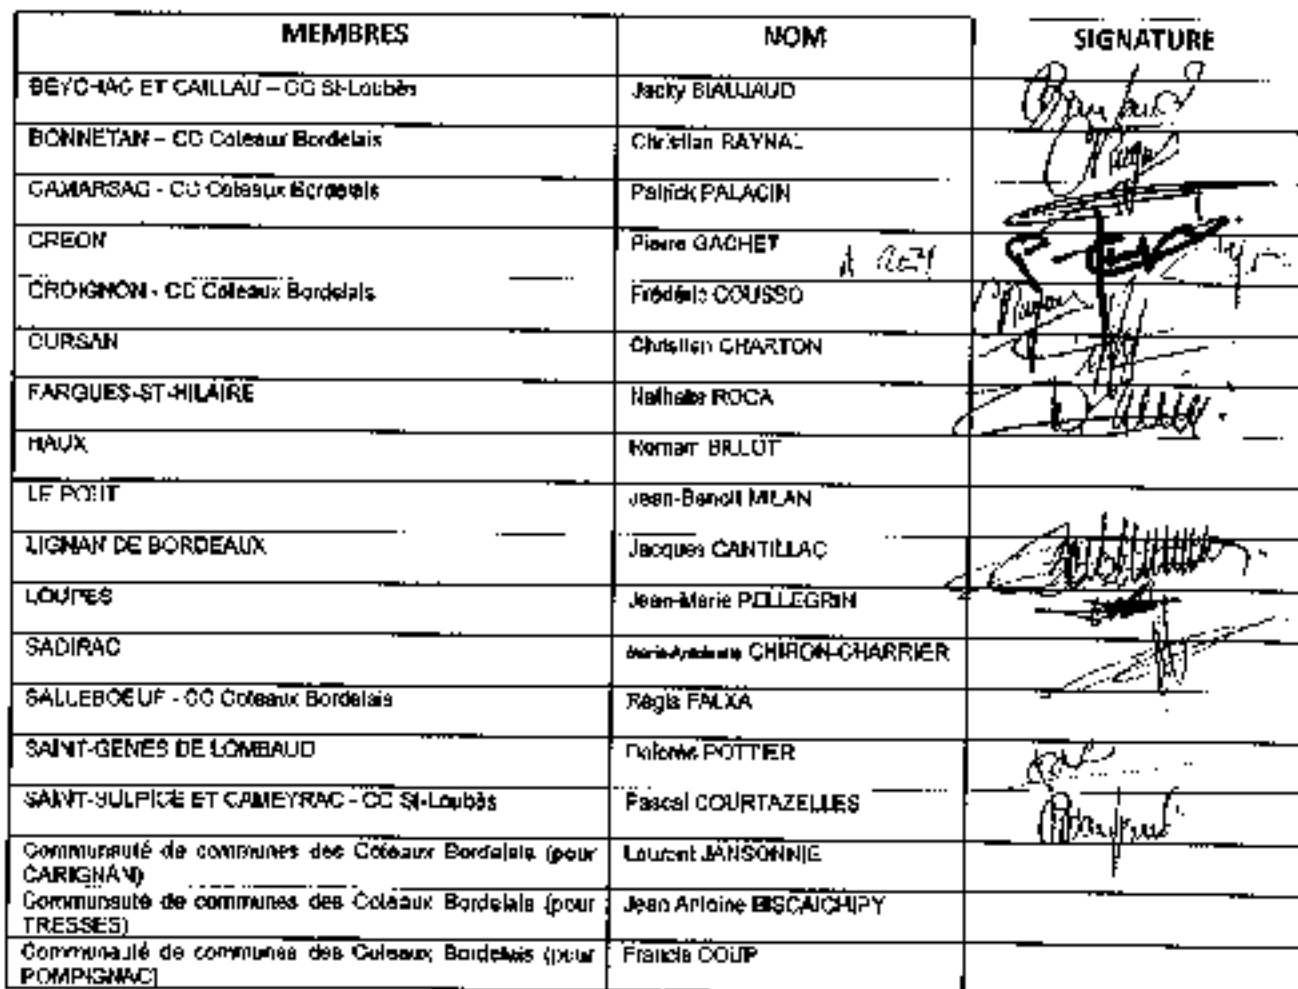 MEMBRES NOM SIGNATURE
BEYCHAC ET CAILLAU – CC St-Loubès Jacky BIAUJAUD
BONNETAN – CC Coteaux Bordelais Christian RAYNAL
CAMARSAC - CC Coteaux Bordelais Patrick PALACIN
CREON Pierre GACHET
CROIGNON - CC Coteaux Bordelais Frédéric COUSSO
CURSAN Christian CHARTON
FARGUES-ST-HILAIRE Nathalie ROCA
HAUX Romain BILLOT
LE POUT Jean-Benoit MILAN
LIGNAN DE BORDEAUX Jacques CANTILLAC
LOUPES Jean-Marie PELLEGRIN
SADIRAC CHIRON-CHARRIER
SALLEBOEUF - CC Coteaux Bordelais Régis FALXA
SAINT-GENES DE LOMBAUD Dolorès POTTIER
SAINT-SULPICE ET CAMEYRAC - CC St-Loubès Pascal COURTAZELLES
Communauté de communes des Coteaux Bordelais (pour Laurent JANSONNIE
CARIGNAN)
Communauté de communes des Coteaux Bordelais (pour Jean Antoine BISCAICHIPY
TRESSES)
Communauté de communes des Coteaux Bordelais (pour Francis COUP
POMPIGNAC)